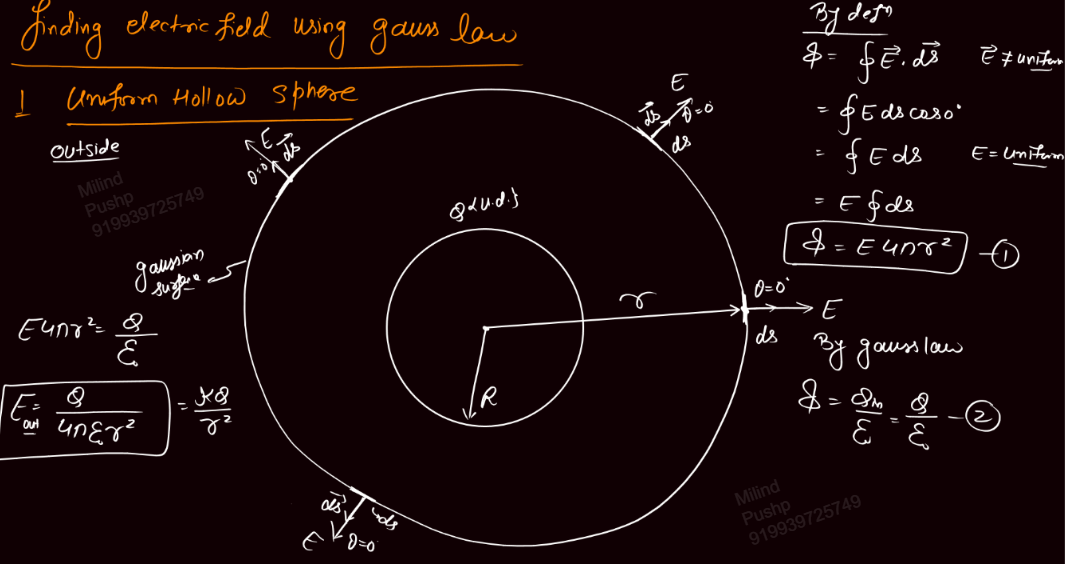 finding electric field using gauss law
1 Uniform Hollow sphere
outside
Milind
Pushp
919939725749
gaussian
surface
E4πr² = Q/ε₀
E out = Q/4πε₀r² = kQ/r²
E ds θ=0°
Q {u.d.}
r
R
E
ds θ=0°
ds
θ=0°
E
ds
ds ds
E θ=0
By defⁿ
ϕ = ∮E⃗.ds⃗ E⃗ ≠ uniform
= ∮E ds cos0°
= ∮E ds E = uniform
= E∮ds
ϕ = E4πr² — ①
By gauss law
ϕ = Qin/ε₀ = Q/ε₀ — ②
Milind
Pushp
919939725749